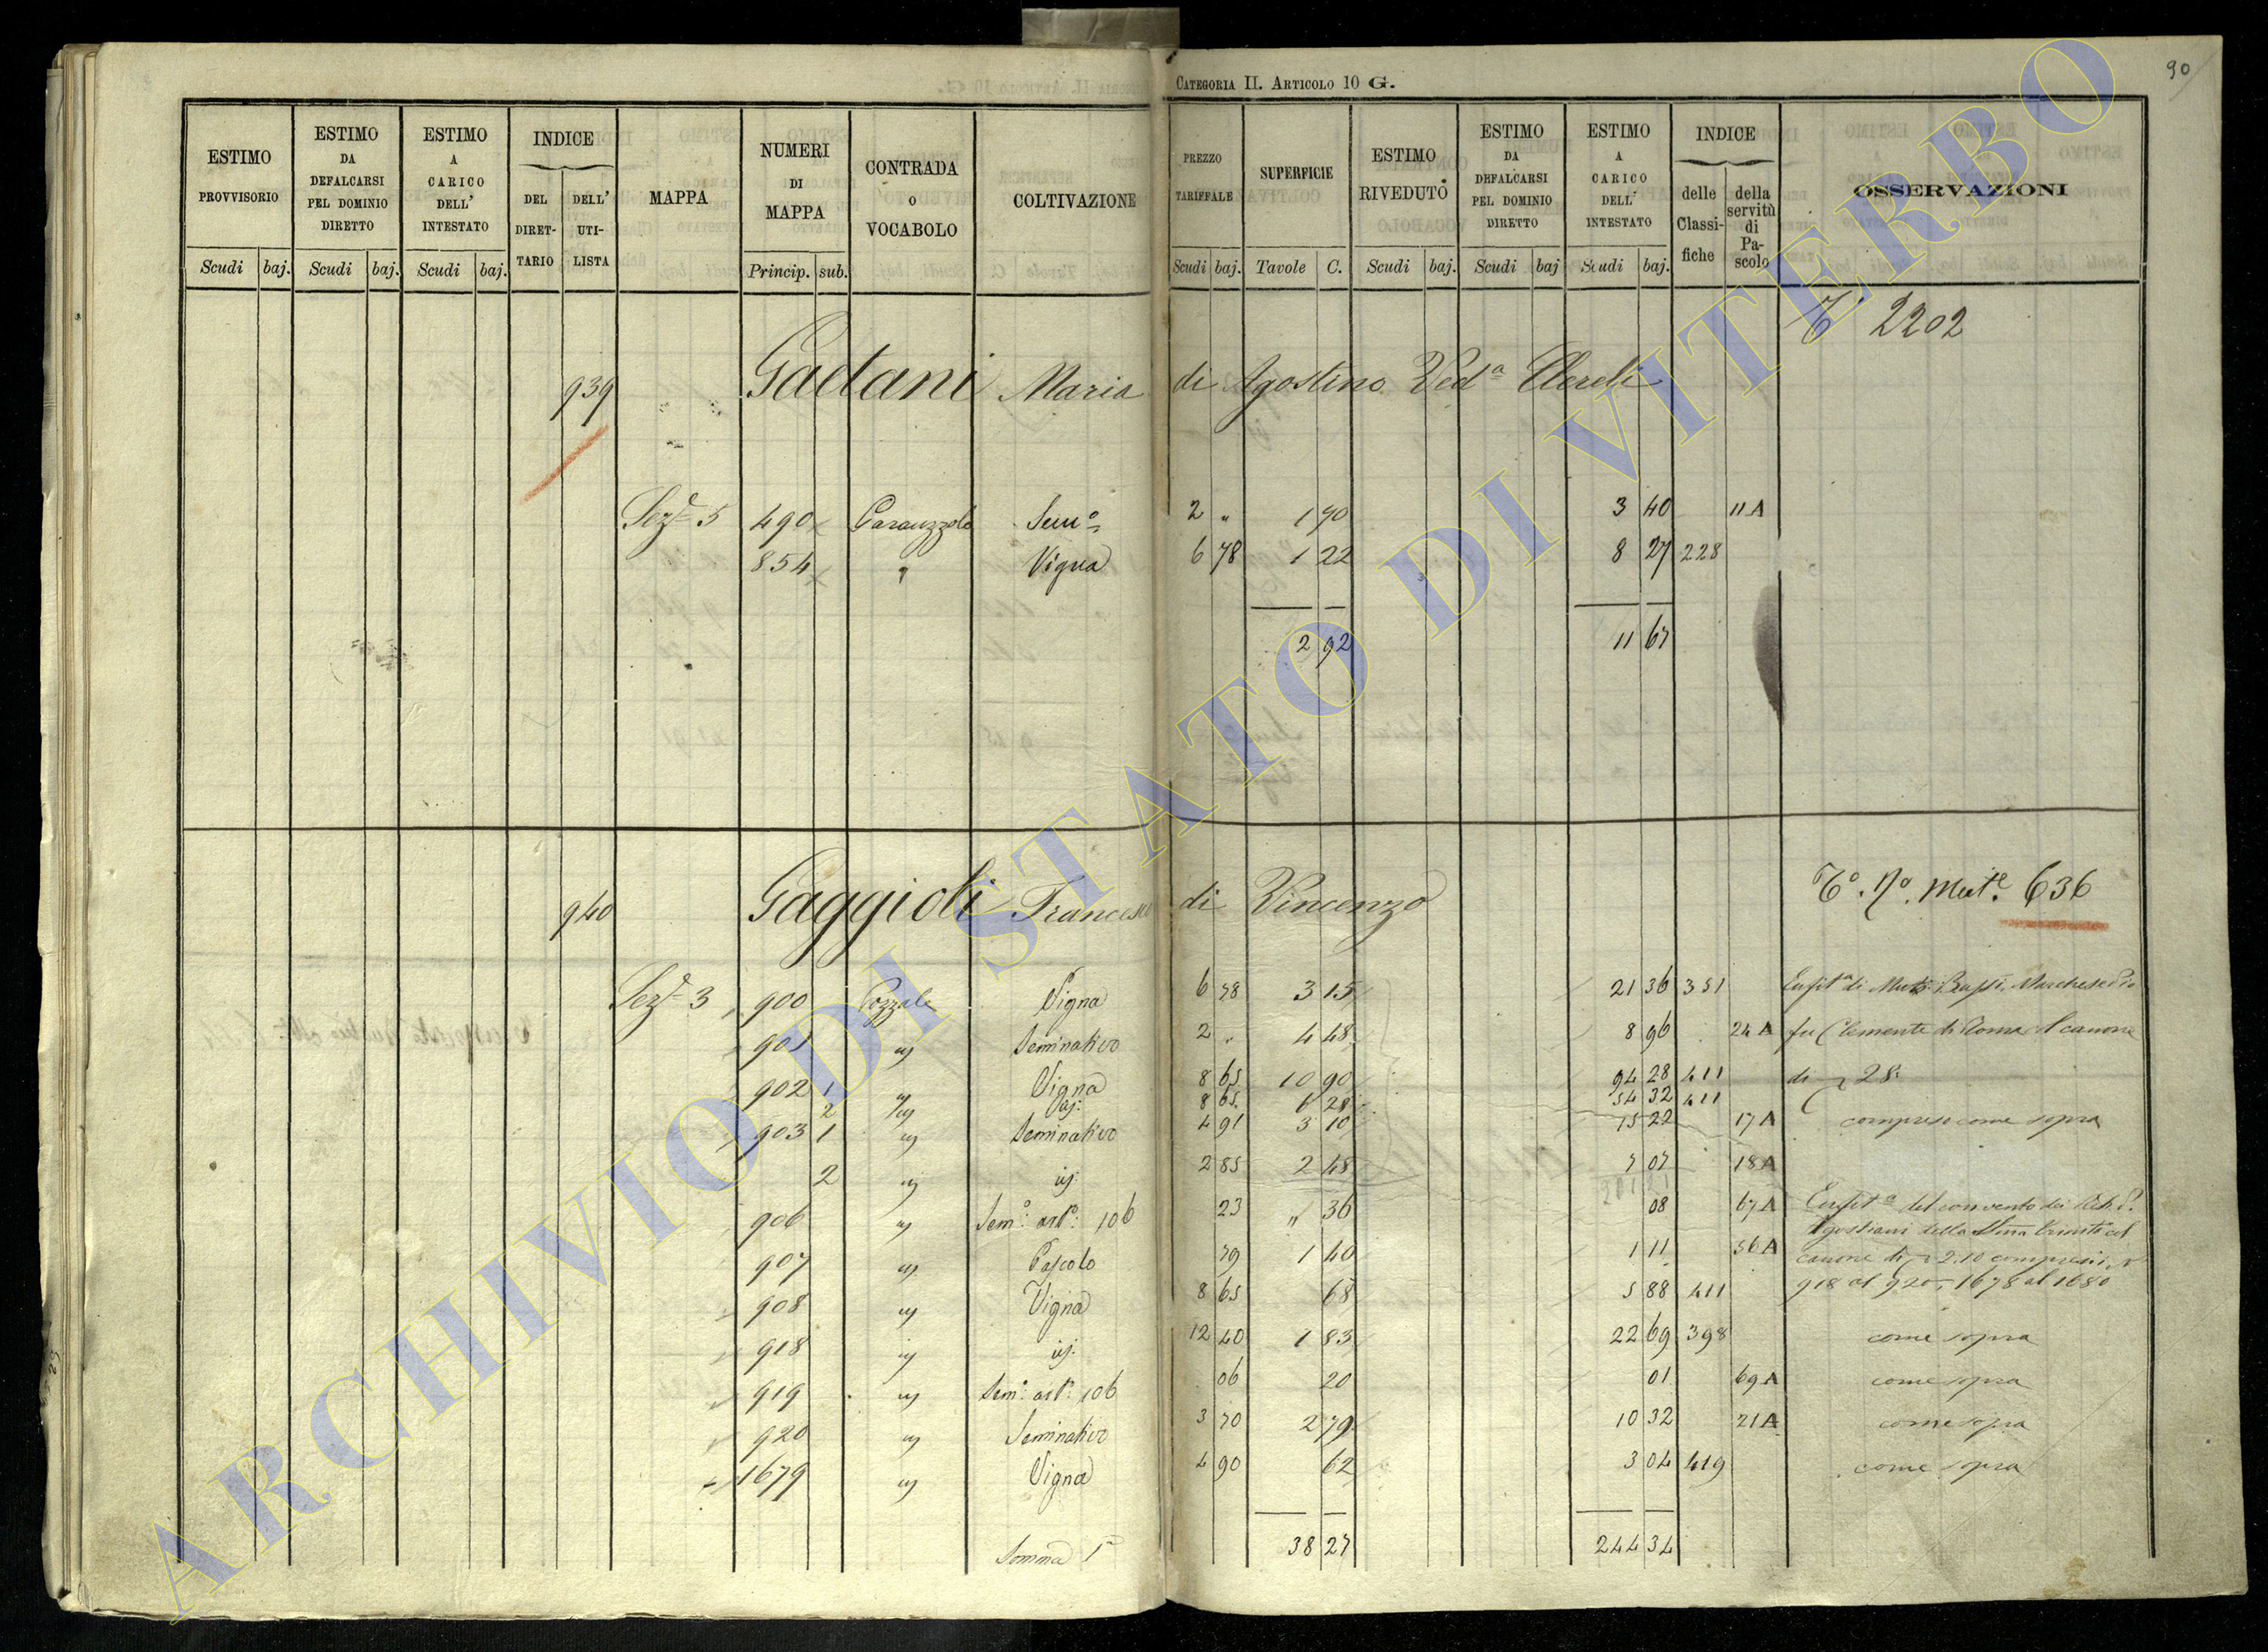 90
CATEGORIA II. ARTICOLO 10 G.
ESTIMO PROVVISORIO
ESTIMO DA DEFALCARSI PEL DOMINIO DIRETTO
ESTIMO A CARICO DELL' INTESTATO
INDICE
DEL DIRET-TARIO
DELL' UTI-LISTA
MAPPA
NUMERI DI MAPPA
CONTRADA O VOCABOLO
COLTIVAZIONE
PREZZO TARIFFALE
SUPERFICIE
ESTIMO RIVEDUTO
ESTIMO DA DEFALCARSI PEL DOMINIO DIRETTO
ESTIMO A CARICO DELL' INTESTATO
INDICE
delle Classi-fiche
della servitù di Pa-scolo
OSSERVAZIONI
Scudi baj. Scudi baj. Scudi baj. Princip. sub. Scudi baj. Tavole C. Scudi baj. Scudi baj Scudi baj.
2202
939 Gaetani Maria di Agostino Ved.a
Sez.e 5 490 Sem.o 2 " 1 70 3 40 11 A
854 " Vigna 6 78 1 22 8 27 228
2 92 11 67
940 Gaggioli Francesco di Vincenzo
T.o N.o Mut.e 636
Sez.e 3 900 Pozzale Vigna 6 78 3 15 21 36 351 Enfit.a di Muti Marchese Pio
901 " Seminativo 2 " 4 48 8 96 24 A fu Clemente di Roma al canone
902 1 " Vigna 8 65 10 90 94 28 411 di 28.
2 " id: 8 65 6 28 54 32 411
903 1 " Seminativo 4 91 3 10 15 22 17 A compreso come sopra
2 " id. 2 85 2 48 7 07 18 A
906 " Sem.o art.o 106 23 " 36 08 67 A Enfit.a del convento dei
907 " Pascolo 79 1 40 1 11 56 A Agostiani della canone di 2.10 compresi
908 " Vigna 8 65 68 5 88 411 918 al 920, 1678 al 1680
918 " id. 12 40 1 83 22 69 398 come sopra
919 " Sem.o art.o 106 06 20 01 69 A come sopra
920 " Seminativo 3 70 2 79 10 32 21 A come sopra
1679 " Vigna 4 90 62 3 04 419 come sopra
Somma 1a 38 27 244 34
ARCHIVIO DI STATO DI VITERBO